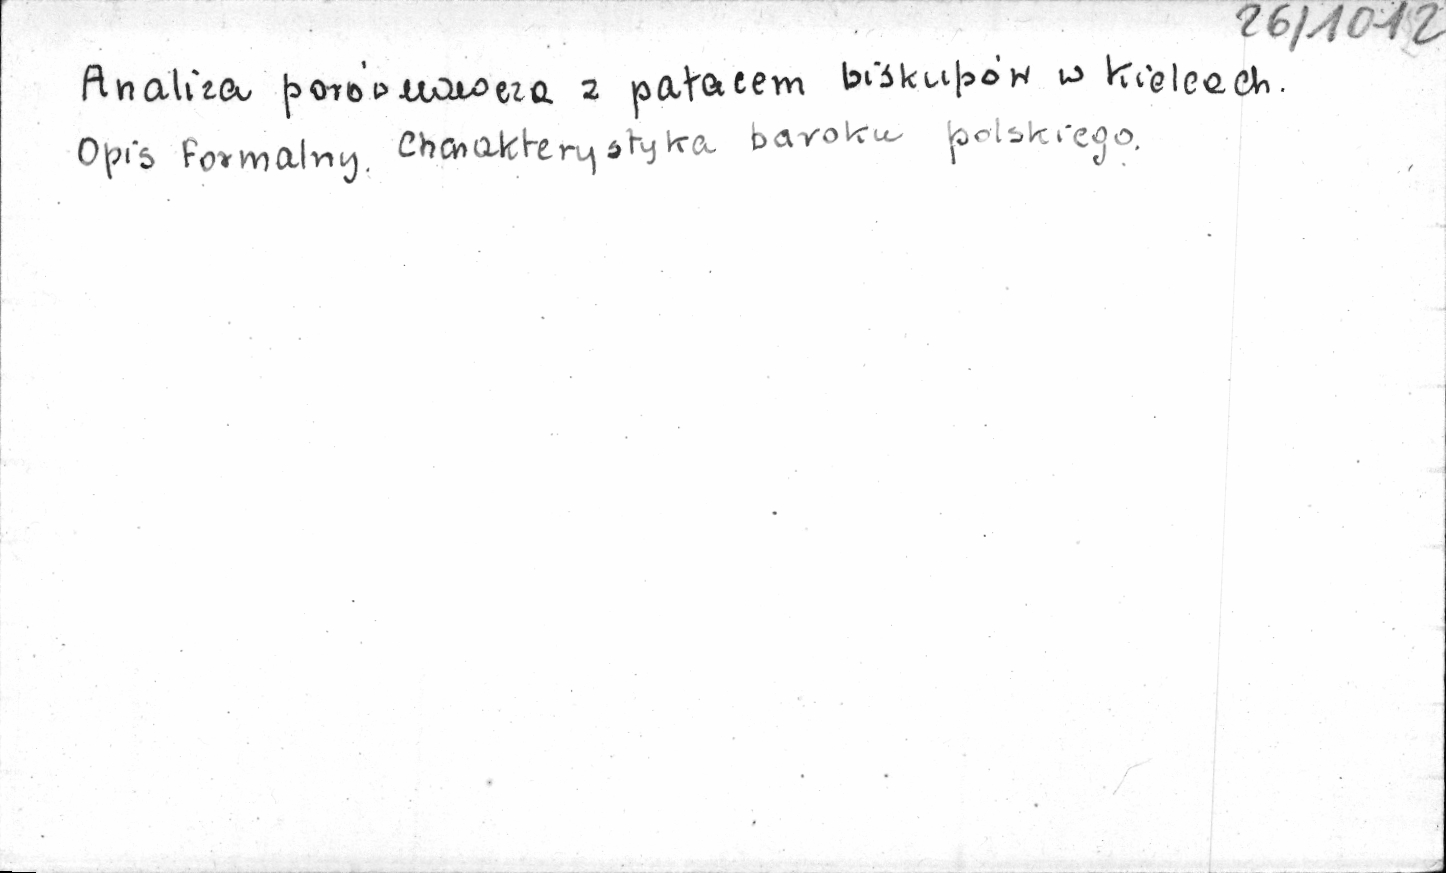 26/1012
Analiza porównawcza z pałacem biskupów w Kielcach.
Opis formalny. Charakterystyka baroku polskiego.